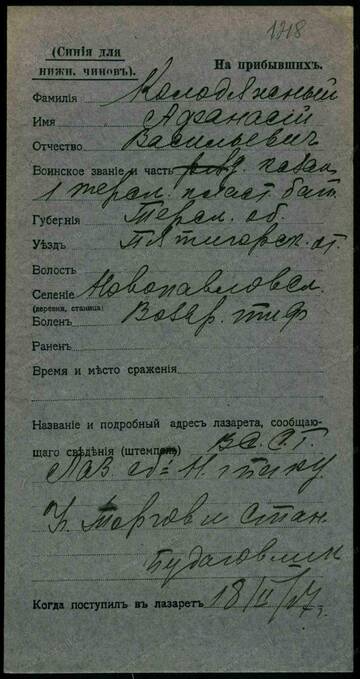 1218
(Синія для
нижн. чиновъ).
На прибывшихъ.
Фамилія Колодяжный
Имя Афанасій
Отчество Васильевич
Воинское званіе и часть казак
1 терск. пласт. бат.
Губернія Терск. об.
Уѣздъ Пятигорск. от.
Волость
Селеніе Новопавловск.
(деревня, станица)
Боленъ Возвр. тиф
Раненъ
Время и мѣсто сраженія
Названіе и подробный адресъ лазарета, сообщаю-
щаго свѣдѣнія (штемпель) В.С.Г.
Лаз.
Стан
Когда поступилъ въ лазаретъ 18/II/17